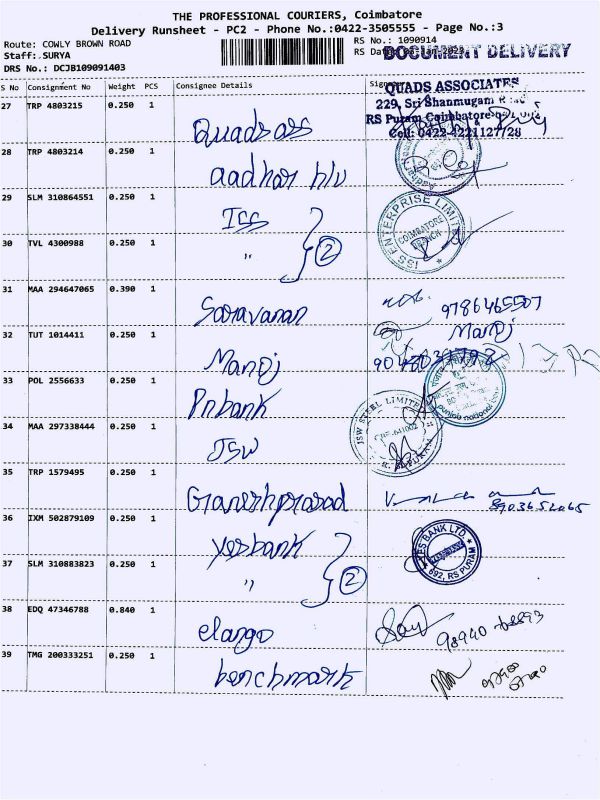 THE PROFESSIONAL COURIERS, Coimbatore
Delivery Runsheet - PC2 - Phone No.:0422-3505555 - Page No.:3
Route: COWLY BROWN ROAD
RS No.: 1090914
Staff:.SURYA
RS Da
DOCUMENT DELIVERY
DRS No.: DCJB109091403
S No Consignment No Weight PCS Consignee Details Sig
QUADS ASSOCIATES
229, Sri Shanmugam
RS Puram Coimbatore
Cell: 0422-4221127/28
27 TRP 4803215 0.250 1 Quadsass
28 TRP 4803214 0.250 1 aadhar h/u
29 SLM 310864551 0.250 1 Iss
ISS ENTERPRISE LIMITED
COIMBATORE
BRANCH
30 TVL 4300988 0.250 1 " 2
31 MAA 294647065 0.390 1 Saravanan
9786465507
32 TUT 1014411 0.250 1 Manoj
Manoj
33 POL 2556633 0.250 1 Pnbank
punjab national
34 MAA 297338444 0.250 1 JSW
JSW STEEL LIMITED
35 TRP 1579495 0.250 1 Ganeshprasad
8903652065
36 IXM 502879109 0.250 1 yesbank
YES BANK LTD.
692, RS PURAM
37 SLM 310883823 0.250 1 " 2
38 EDQ 47346788 0.840 1 elango
98940
39 TMG 200333251 0.250 1 benchmark